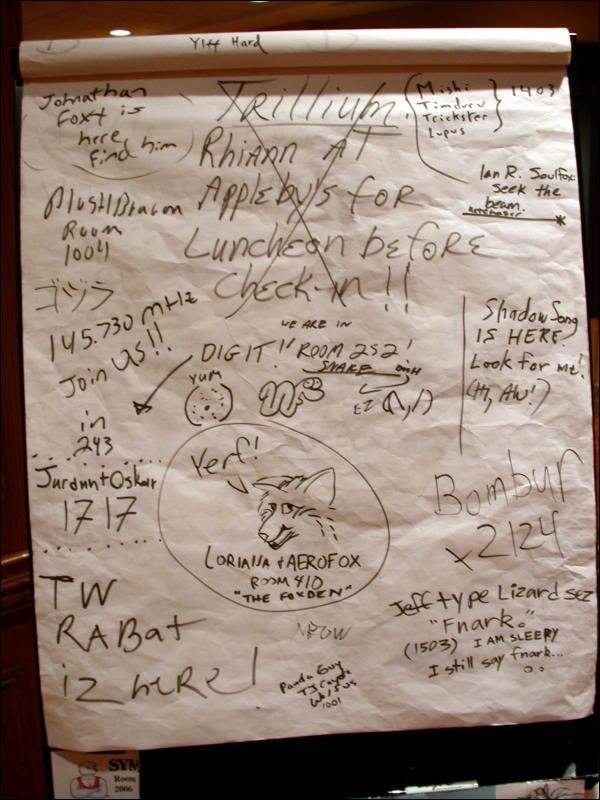 Yiff Hard
Johnathan
Foxt is
here
Find him
Trillium
Rhiann AT
Appleby's for
Luncheon before
Check-in!!
Mishi
Timduru
Trickster
Lupus
1403
Ian R. Soulfox
Seek the
beam.
PlushDragon
Room
1004
ゴジラ
145.730 mHz
Join US!!
in
243
WE ARE IN
DIGIT! ROOM 252!
SNAKE
YUM
EZ
ShadowSong
IS HERE,
Look for me!
(Hi, AW!)
+ Oskar
1717
Yerf!
LORIANA + AEROFOX
ROOM 410
"THE FOXDEN"
Bombur
x2124
TW
RABat
iz here!
MROW
Panda Guy
TJ Coyote
1001
Jeff type Lizard sez
"Fnark."
(1503) I AM SLEEPY
I still say fnark...
SYM
Room
2006